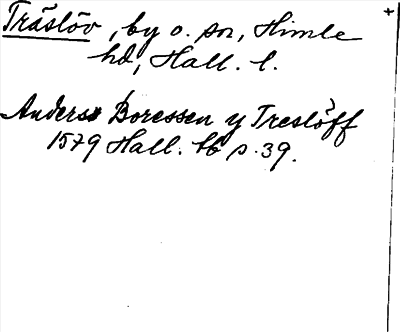 Träslöv, by o. sn, Himle
hd, Hall. l.
Anders Boressen y Treslöff
1579 Hall. tb s. 39.